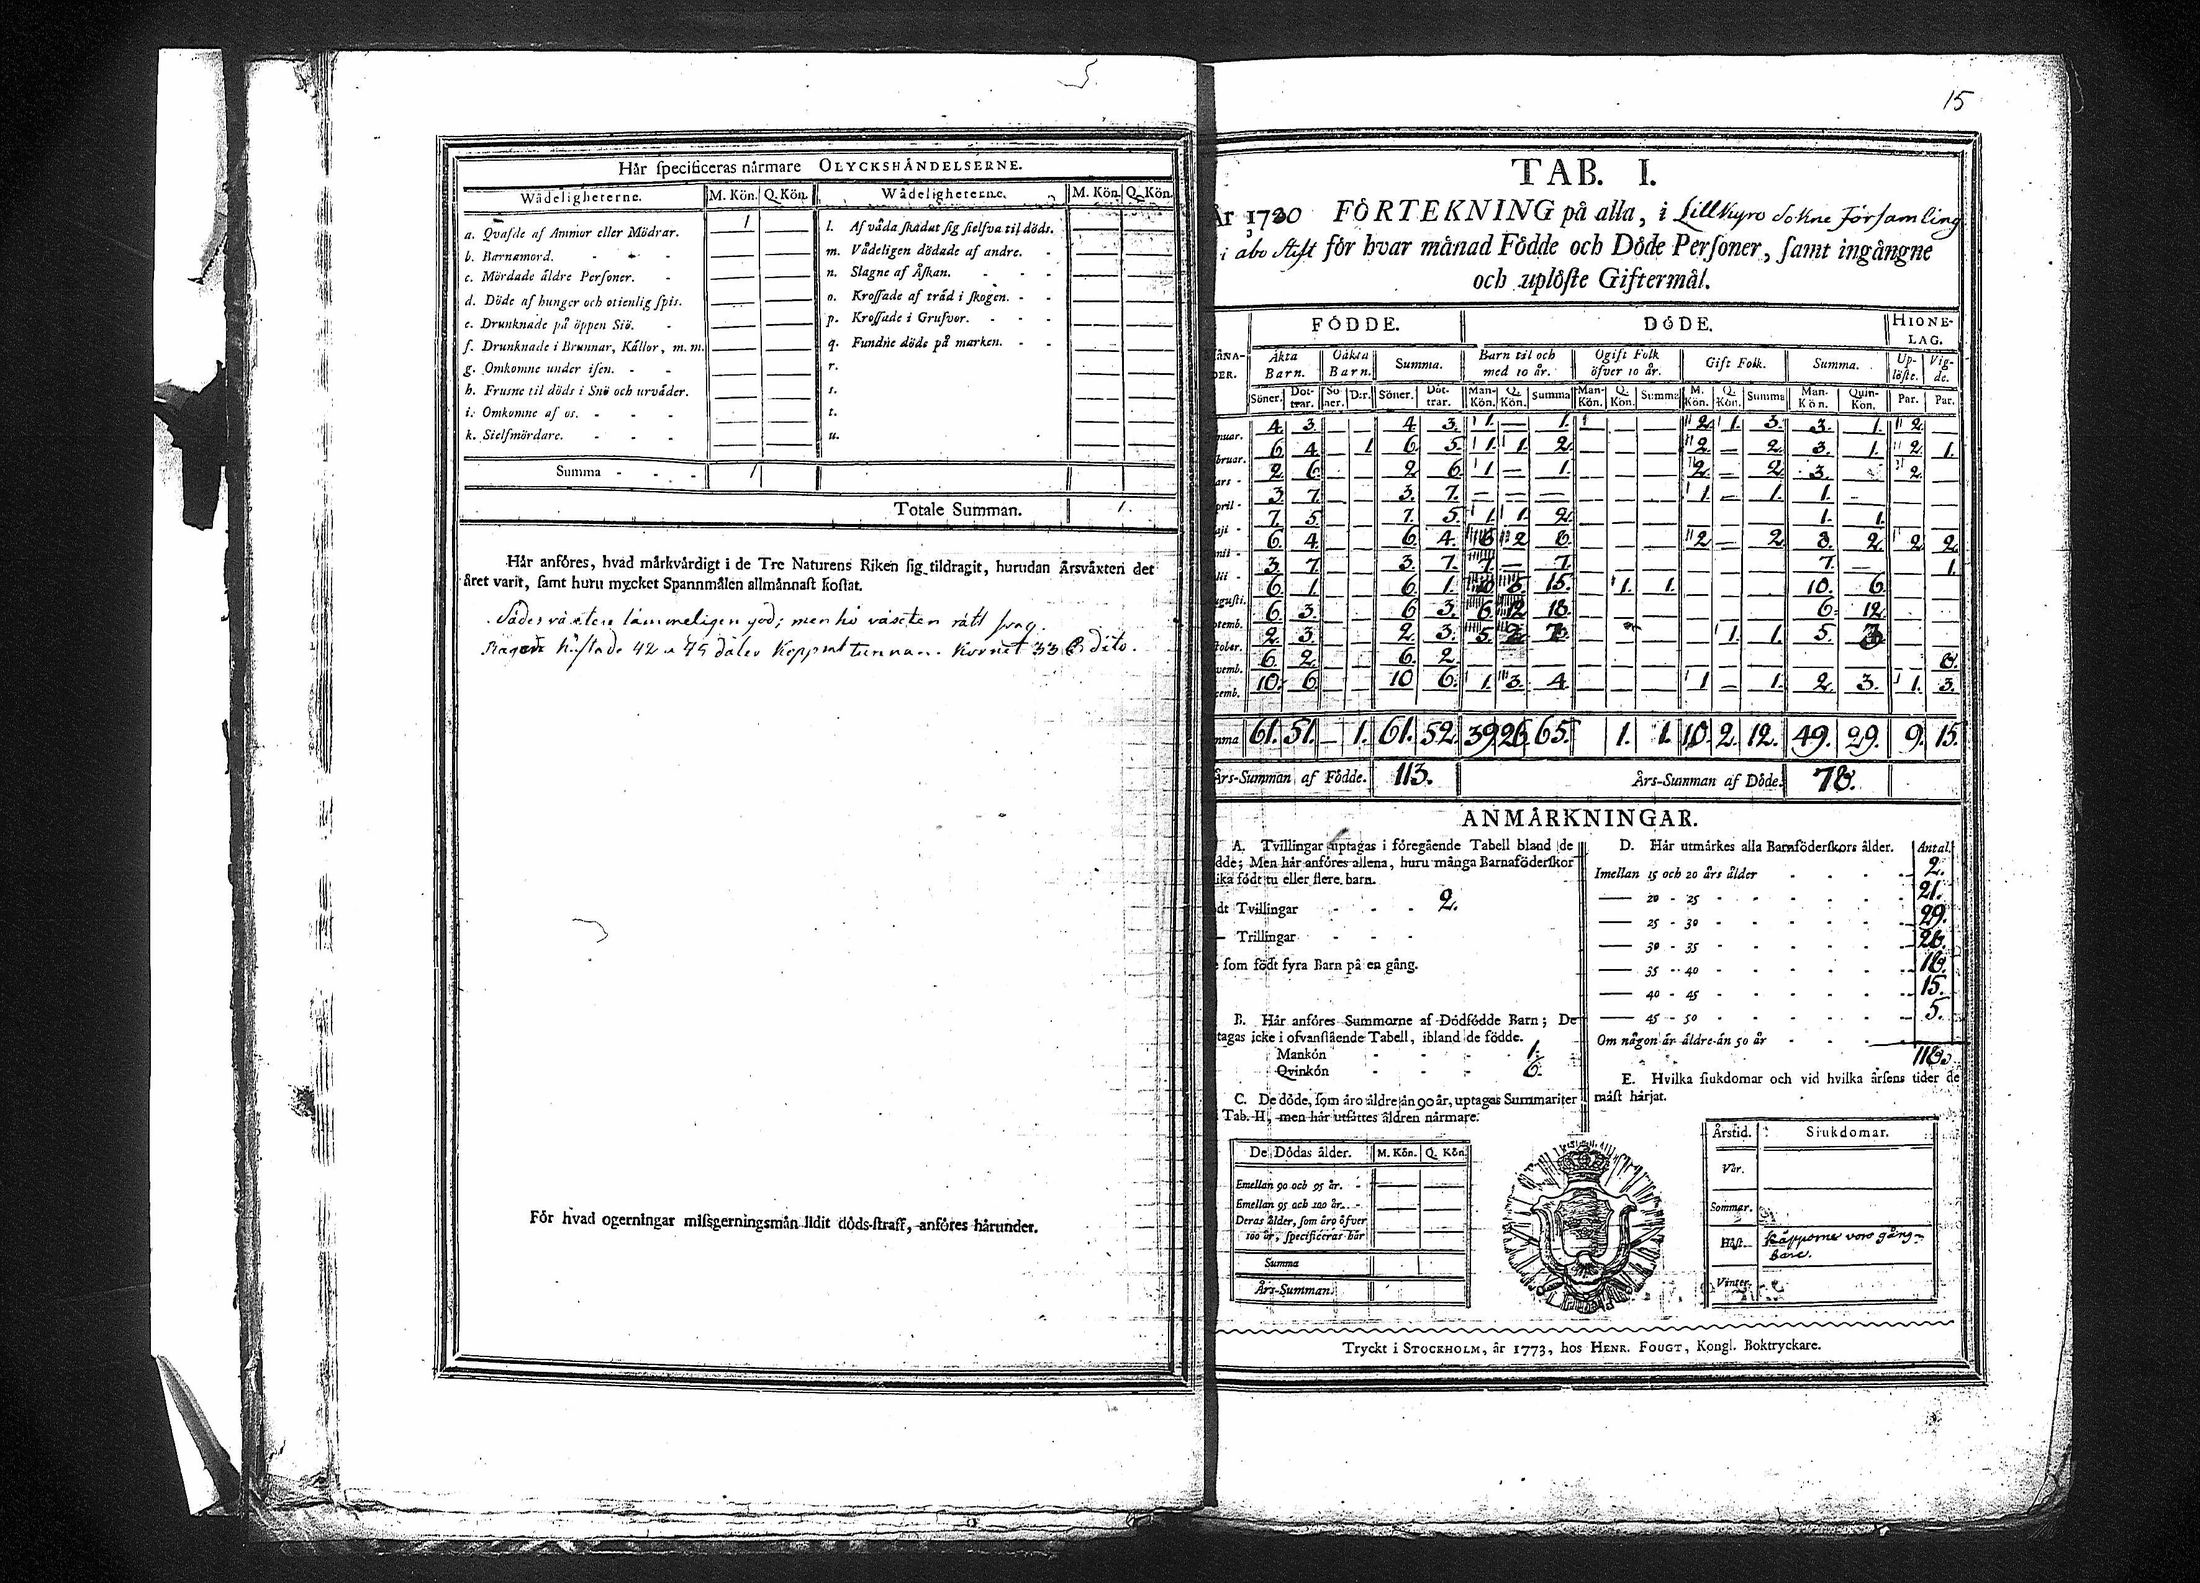 5
Här specificeras närmare OLYCKSHÄNDELSERNE.
Wådeligheterne. M. Kön. Q. Kön. Wådeligheterne. M. Kön. Q. Kön.
a. Qvafde af Ammor eller Mödrar. 1 — l. Af våda skadat sig sielfva til döds. — —
b. Barnamord. - - - — — m. Vådeligen dödade af andre. - — —
c. Mördade äldre Personer. - — — n. Slagne af Åskan. - - - — —
d. Döde af hunger och otienlig spis. — — o. Krossade af träd i skogen. - - — —
e. Drunknade på öppen Siö. - — — p. Krossade i Grufvor. - - - — —
f. Drunknade i Brunnar, Källor, m. m. — — q. Fundne döde på marken. - - — —
g. Omkomne under isen. - - — — r.
h. Frusne til döds i Snö och urväder. — — s.
i. Omkomne af os. - - - — — t.
k. Sielfmördare. - - - — — u.
Summa - - - 1
Totale Summan. 1.
Här anföres, hvad märkvärdigt i de Tre Naturens Riken sig tildragit, hurudan Årsväxten det
året varit, samt huru mycket Spannmålen allmännast kostat.
Sädes växten lämmeligen god; men hö växten rätt svag.
Rågen kostade 42 a 45 daler Kopp mt tunnan. Kornet 33 dito.
För hvad ogerningar missgerningsmän lidit döds-straff, anföres härunder.
15
TAB. I.
År 1780 FÖRTEKNING på alla, i Lillkyro Sokne Församling
i Abo Stift för hvar månad Födde och Döde Personer, samt ingångne
och uplöste Giftermål.
FÖDDE. DÖDE. HIONE-
LAG.
MÅNA-
DER. Äkta
Barn. Oäkta
Barn. Summa. Barn til och
med 10 år. Ogift Folk
öfver 10 år. Gift Folk. Summa. Up-
löste. Vig-
de.
Söner. Döt-
trar. So-
ner. D:r. Söner. Döt-
trar. Man-
Kön. Q.
Kön. Summa Man-
Kön. Q.
Kön. Summa M.
Kön. Q.
Kön. Summa Man-
Kön. Quin-
Kon. Par. Par.
nuar. 4. 3. — — 4. 3. 1. — 1. — — — 2. 1. 3. 3. 1. 2.
bruar. 6. 4. — 1 6. 5. 1. 1. 2. — — — 2. — 2. 3. 1. 2. 1.
ars - 2. 6. — — 2. 6. 1 — 1. — — — 2. — 2. 3. 2.
pril - 3. 7. — — 3. 7. — — — — — — 1. — 1. 1. —
aji - 7. 5. — — 7. 5. 1. 1. 2. — — — — — — 1. 1.
nii - 6. 4. — — 6. 4. 6 2 8. — — — 2. — 2. 8. 2. 2. 2.
lii - 3. 7. — — 3. 7. 7. — 7. — — — — — — 7. — 1.
ugusti. 6. 1. — — 6. 1. 10 5. 15. — 1. 1. — — — 10. 6.
ptemb. 6. 3. — — 6. 3. 6 12 18. — — — — — — 6. 12.
ctober. 2. 3. — — 2. 3. 5. 2. 7. — — — — 1. 1. 5. 3.
vemb. 6. 2. — — 6. 2. — — — — — — — — — — — 8.
cemb. 10. 6. — — 10 6. 1. 3. 4. — — — 1 — 1. 2. 3. 1. 3.
mma 61. 51. — 1. 61. 52. 39 26 65. 1. 1. 10. 2. 12. 49. 29. 9. 15.
Års-Summan af Födde. 113. Års-Summan af Döde. 78.
ANMÄRKNINGAR.
A. Tvillingar uptagas i föregående Tabell bland de
dde; Men här anföres allena, huru många Barnaföderskor
ika födt tu eller flere barn.
dt Tvillingar - - - 2.
— Trillingar - - -
som födt fyra Barn på en gång.
B. Här anföres Summorne af Dödfödde Barn; De
tagas icke i ofvanstående Tabell, ibland de födde.
Mankön - - - 1.
Qvinkön - - - 6.
C. De döde, som äro äldre än 90 år, uptagas Summariter
Tab. II, men här utsättes åldren närmare.
De Dödas ålder. M. Kön. Q. Kön
Emellan 90 och 95 år. - — —
Emellan 95 och 100 år. - — —
Deras ålder, som äro öfver
100 år, specificeras här — —
Summa
Års-Summan.
D. Här utmärkes alla Barnföderskors ålder. Antal.
Imellan 15 och 20 års ålder - - - 2.
— 20 - 25 - - - 21.
— 25 - 30 - - - 29.
— 30 - 35 - - - 28.
— 35 - 40 - - - 18.
— 40 - 45 - - - 15.
— 45 - 50 - - - 5.
Om någon är äldre än 50 år - - -
118.
E. Hvilka siukdomar och vid hvilka årsens tider de
mäst härjat.
Årstid. Siukdomar.
Vår.
Sommar.
Höst. Kåpporne voro gång-
bare.
Vinter.
Tryckt i STOCKHOLM, år 1773, hos HENR. FOUGT, Kongl. Boktryckare.